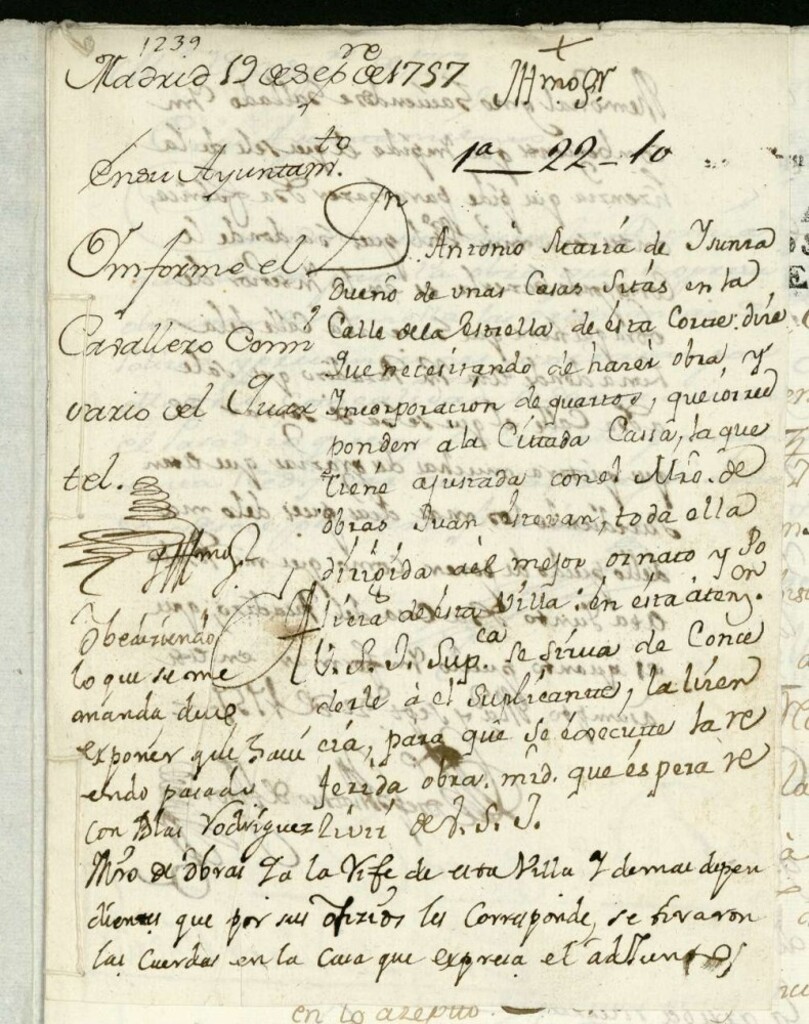 1239
Madrid 19 de Sepre de 1757
Illmo Sr
En su Ayuntamto.
1a 22-10
Informe el
Cavallero Comi
sario del Quar
tel.
Dn. Antonio María de Ysunza
Dueño de unas Casas Sitas en la
Calle de la Estrella de esta Corte: dize
Que necesitando de hazer obra, y
Incorporazión de quartos, que corres
ponden a la Cittada Cassa, la que
tiene ajustada con el Mro. de
obras Juan Estevan, toda ella
dirigida a el mejor ornato y Po
lizia de esta Villa: en esta atenzon.
A V. S. I. Supca. se sirva de Conce
derle à el Suplicante, la lizen
cia, para que se execute la re
ferida obra. mrd. que espera re
zivir de V. S. I.
Obedeziendo
lo que se me
manda devo
exponer que havi
endo pasado
con Blas Rodriguez
Mro de Obras Ja la Vife de esta Villa y demas depen
dientes que por sus ofizios les Corresponde, se tiraron
las Cuerdas en la Casa que expresa el adJunto
en lo azepto.